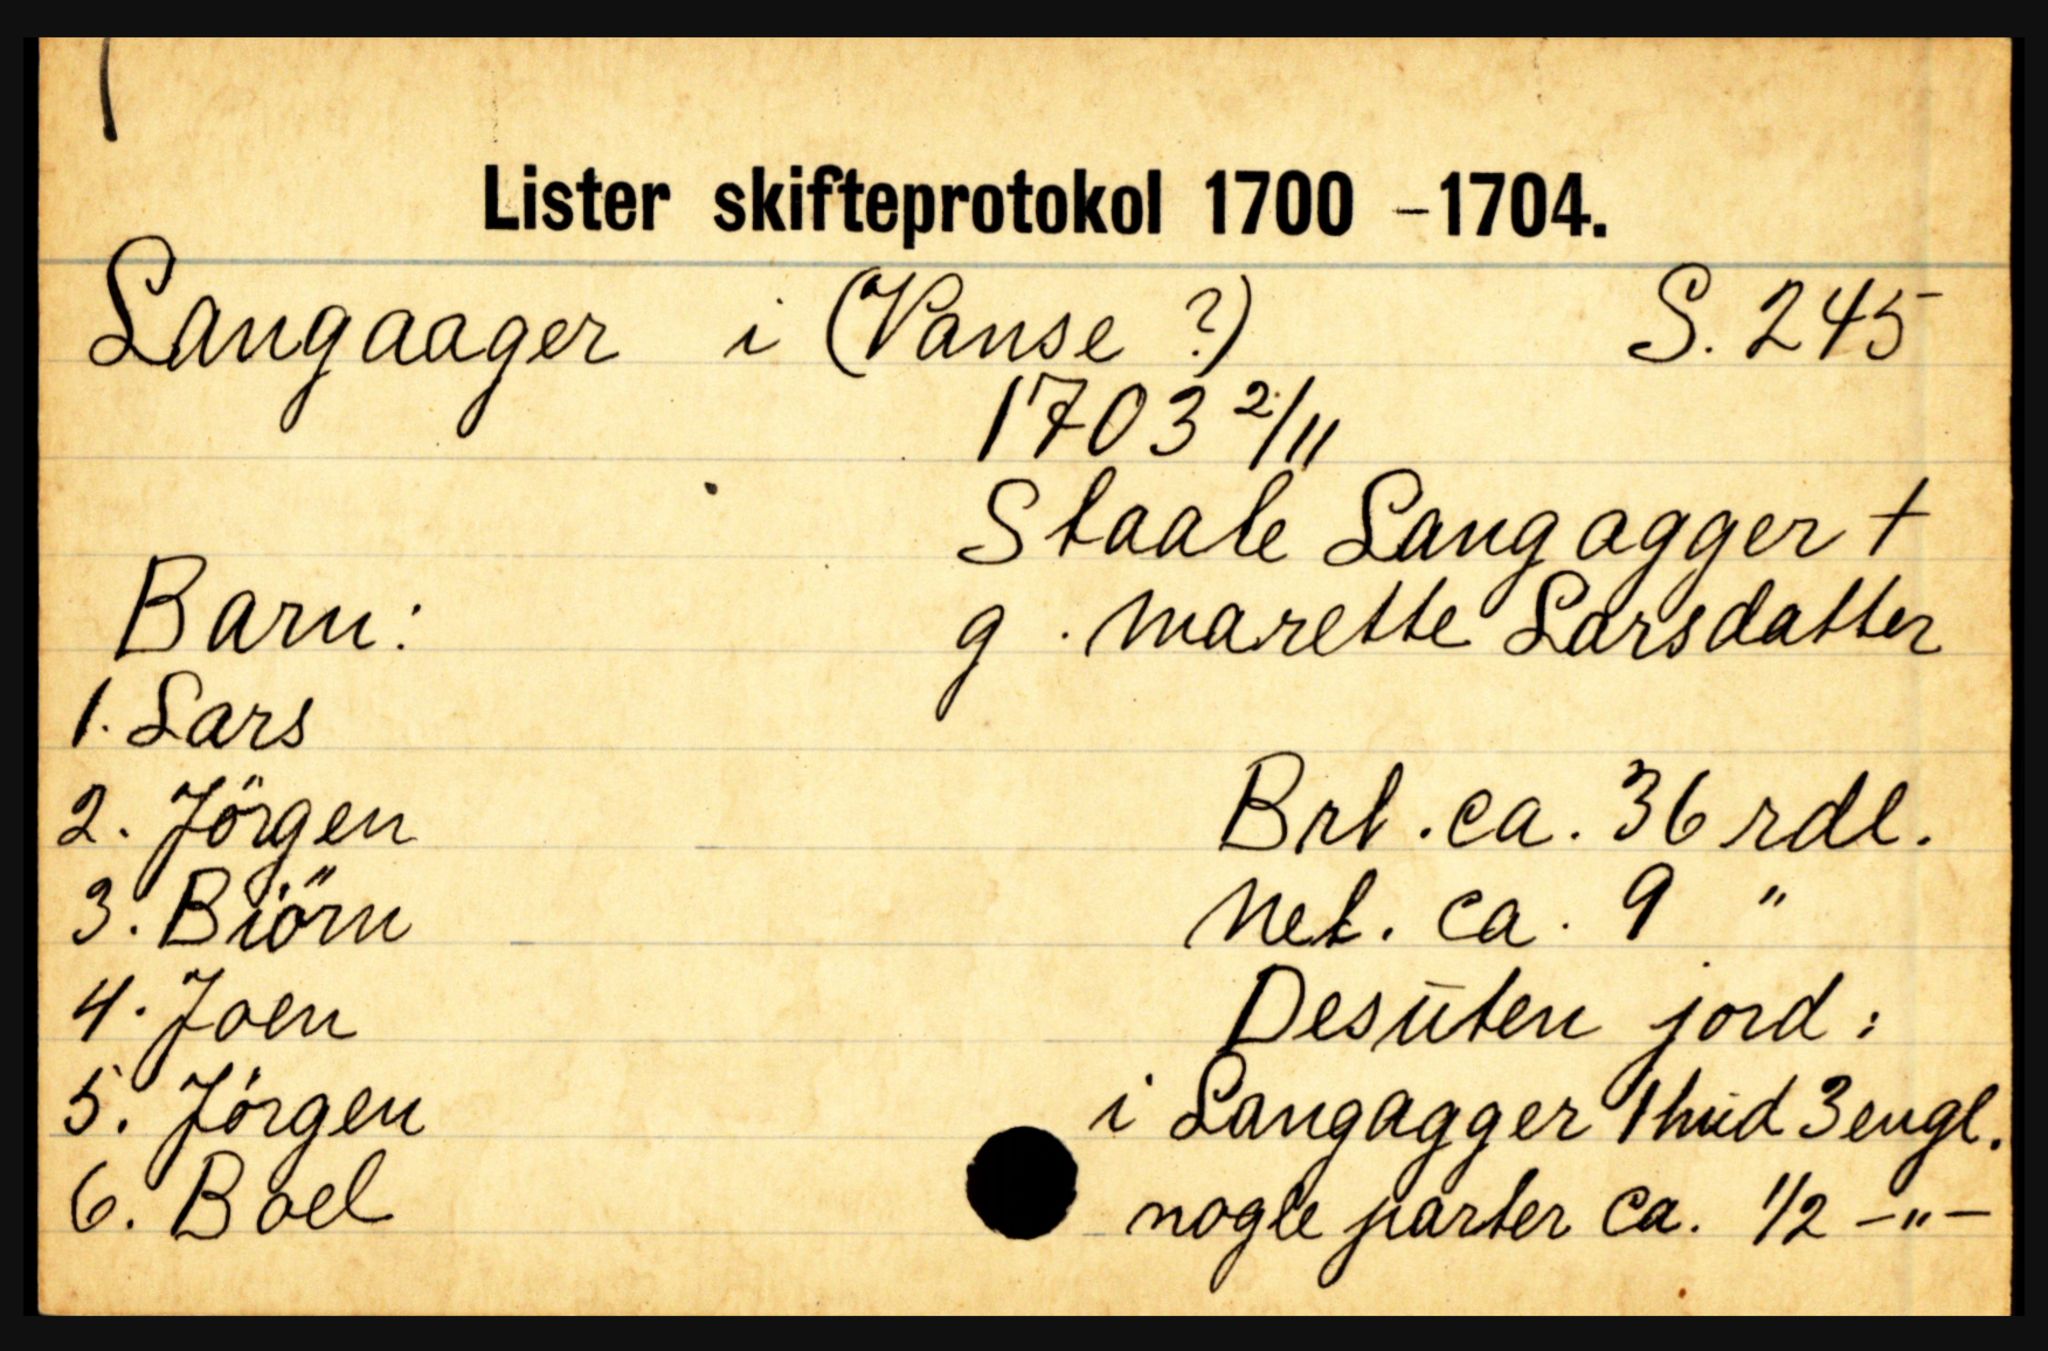 Lister skifteprotokol 1700 - 1704.
Langaager i (Vanse ?) S. 245
1703 2/11
Staale Langagger +
g. Marette Larsdatter
Barn:
1. Lars
2. Jörgen
3. Biörn
4. Joen
5. Jörgen
6. Boel
Brt. ca. 36 rdl.
Net. ca. 9 "
Desūten jord:
i Langagger 1 hūd 3 engl.
nogle parter ca. 1/2 -"-